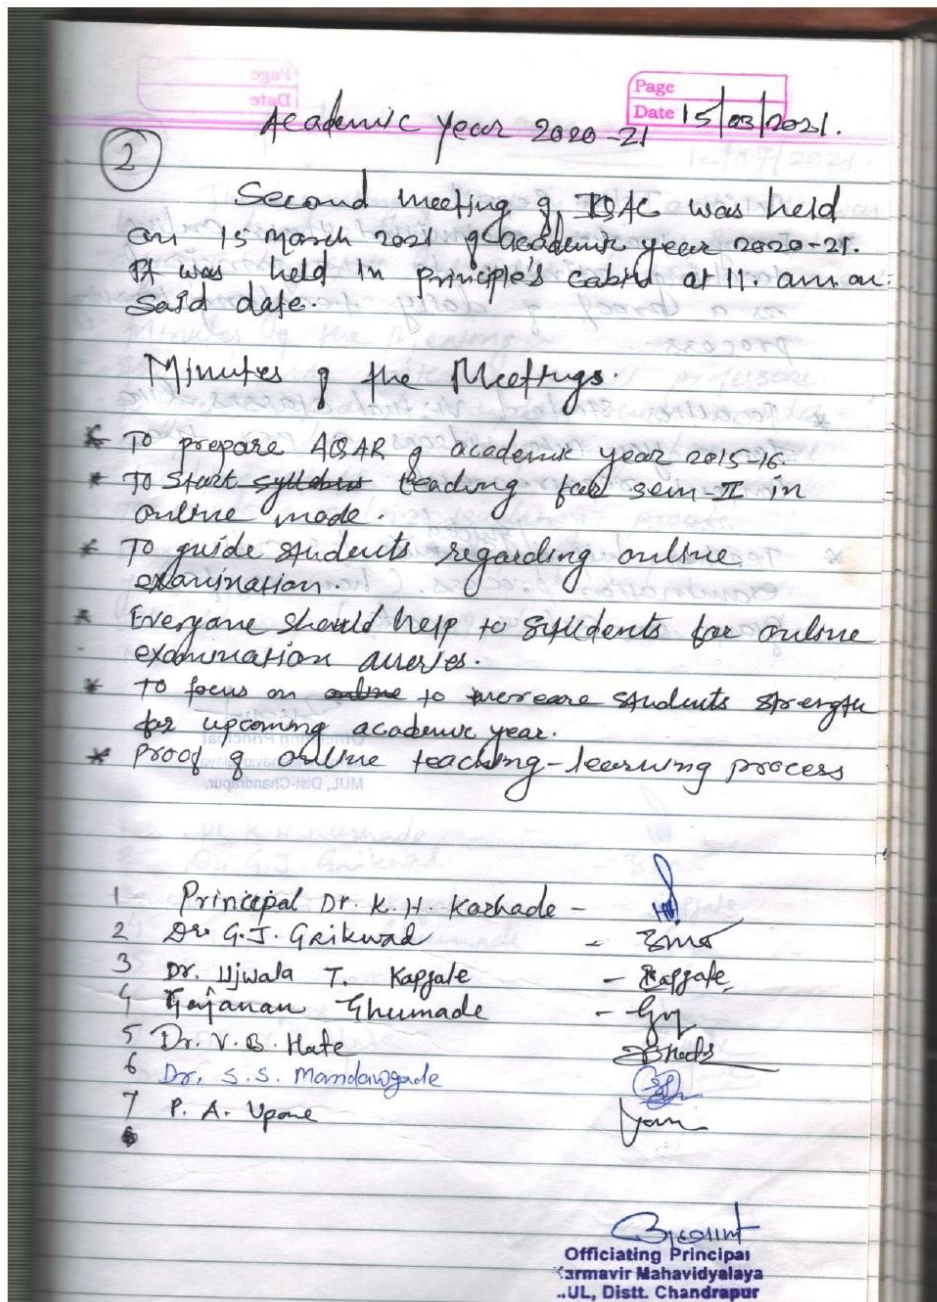 Page
Date 15/03/2021.
Academic year 2020-21
2
Second meeting of IQAC was held
on 15 March 2021 of academic year 2020-21.
It was held in principle's cabin at 11. am. on
said date.
Minutes of the Meetings.
* To prepare AQAR of academic year 2015-16.
* To Start syllabus teaching for sem-II in
online mode.
* To guide students regarding online
examination.
* Everyone should help to students for online
examination queries.
* To focus on online to increase students strength
for upcoming academic year.
* Proof of online teaching-learning process
1 Principal Dr. K. H. Karhade -
2 Dr. G.J. Gaikwad -
3 Dr. Ujwala T. Kapgate - Kapgate
4 Gajanan Ghumade -
5 Dr. V. B. Hate
6 Dr. S.S. Mandawgade
7 P. A. Upone
Officiating Principal
Karmavir Mahavidyalaya
MUL, Distt. Chandrapur